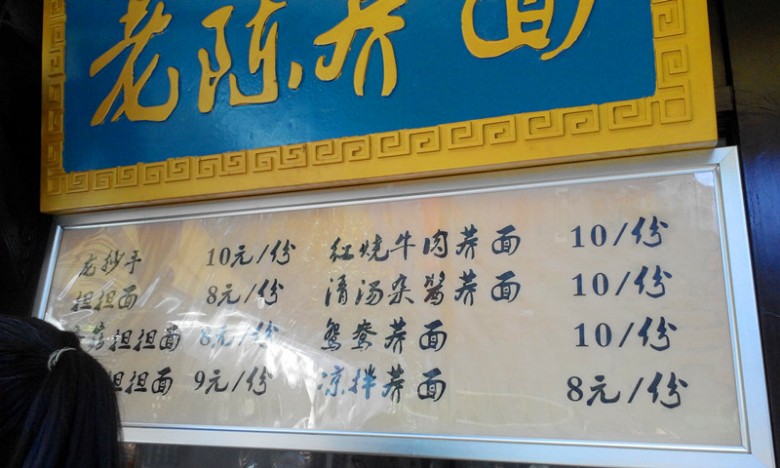 老陈荞面
龙抄手 10元/份 红烧牛肉荞面 10/份
担担面 8元/份 清汤杂酱荞面 10/份
担担面 8元/份 鸳鸯荞面 10/份
担担面 9元/份 凉拌荞面 8元/份